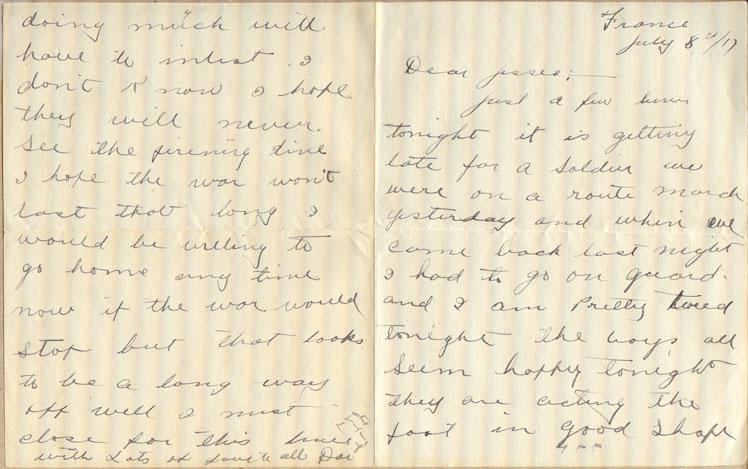 France
July 8th/17
Dear Jessee:—
Just a few lines
tonight it is getting
late for a soldier we
were on a route march
yesterday and when we
came back last night
I had to go on guard.
and I am Pretty tired
tonight the boys all
seem happy tonight
they are acting the
foot in good shape
doing much will
have to inlist I
don't Know I hope
they will never
see the fireing line
I hope the war won't
last that long I
would be willing to
go home any time
now if the war would
stop but that looks
to be a long way
off will I must
close for this time
with Lots of love to all